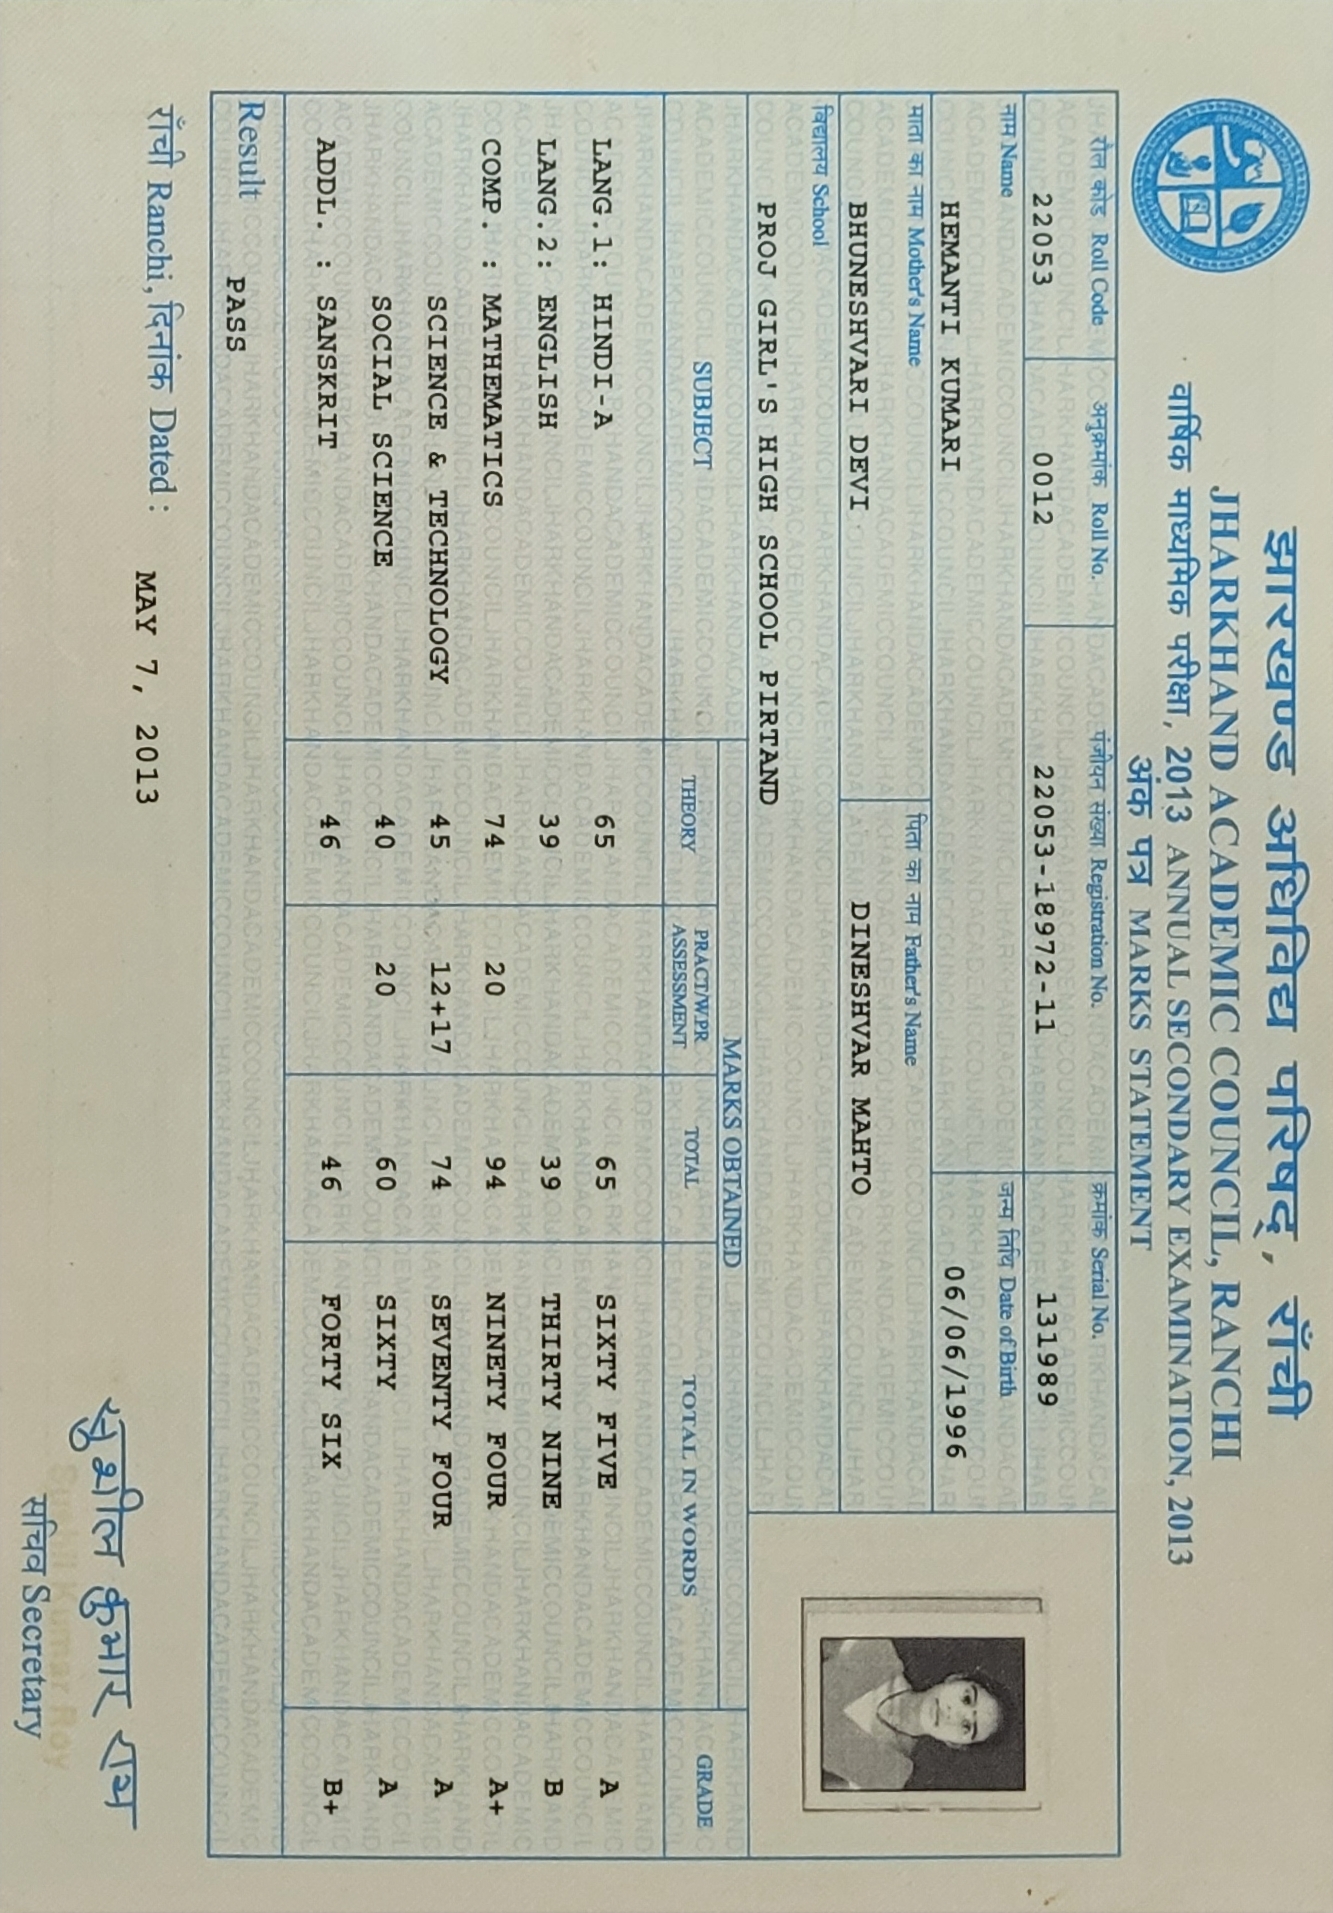 झारखण्ड अधिविद्य परिषद्, राँची
JHARKHAND ACADEMIC COUNCIL, RANCHI
वार्षिक माध्यमिक परीक्षा, 2013 ANNUAL SECONDARY EXAMINATION, 2013
अंक पत्र MARKS STATEMENT
रोल कोड Roll Code अनुक्रमांक Roll No. पंजीयन संख्या Registration No. क्रमांक Serial No.
22053 0012 22053-18972-11 131989
नाम Name जन्म तिथि Date of Birth
HEMANTI KUMARI 06/06/1996
माता का नाम Mother's Name पिता का नाम Father's Name
BHUNESHVARI DEVI DINESHVAR MAHTO
विद्यालय School
PROJ GIRL'S HIGH SCHOOL PIRTAND
MARKS OBTAINED
SUBJECT THEORY PRACT/W.PR ASSESSMENT TOTAL TOTAL IN WORDS GRADE
LANG.1: HINDI-A 65 65 SIXTY FIVE A
LANG.2: ENGLISH 39 39 THIRTY NINE B
COMP. : MATHEMATICS 74 20 94 NINETY FOUR A+
SCIENCE & TECHNOLOGY 45 12+17 74 SEVENTY FOUR A
SOCIAL SCIENCE 40 20 60 SIXTY A
ADDL. : SANSKRIT 46 46 FORTY SIX B+
Result PASS
राँची Ranchi, दिनांक Dated : MAY 7, 2013
सुशील कुमार राय
Sushil Kumar Roy
सचिव Secretary